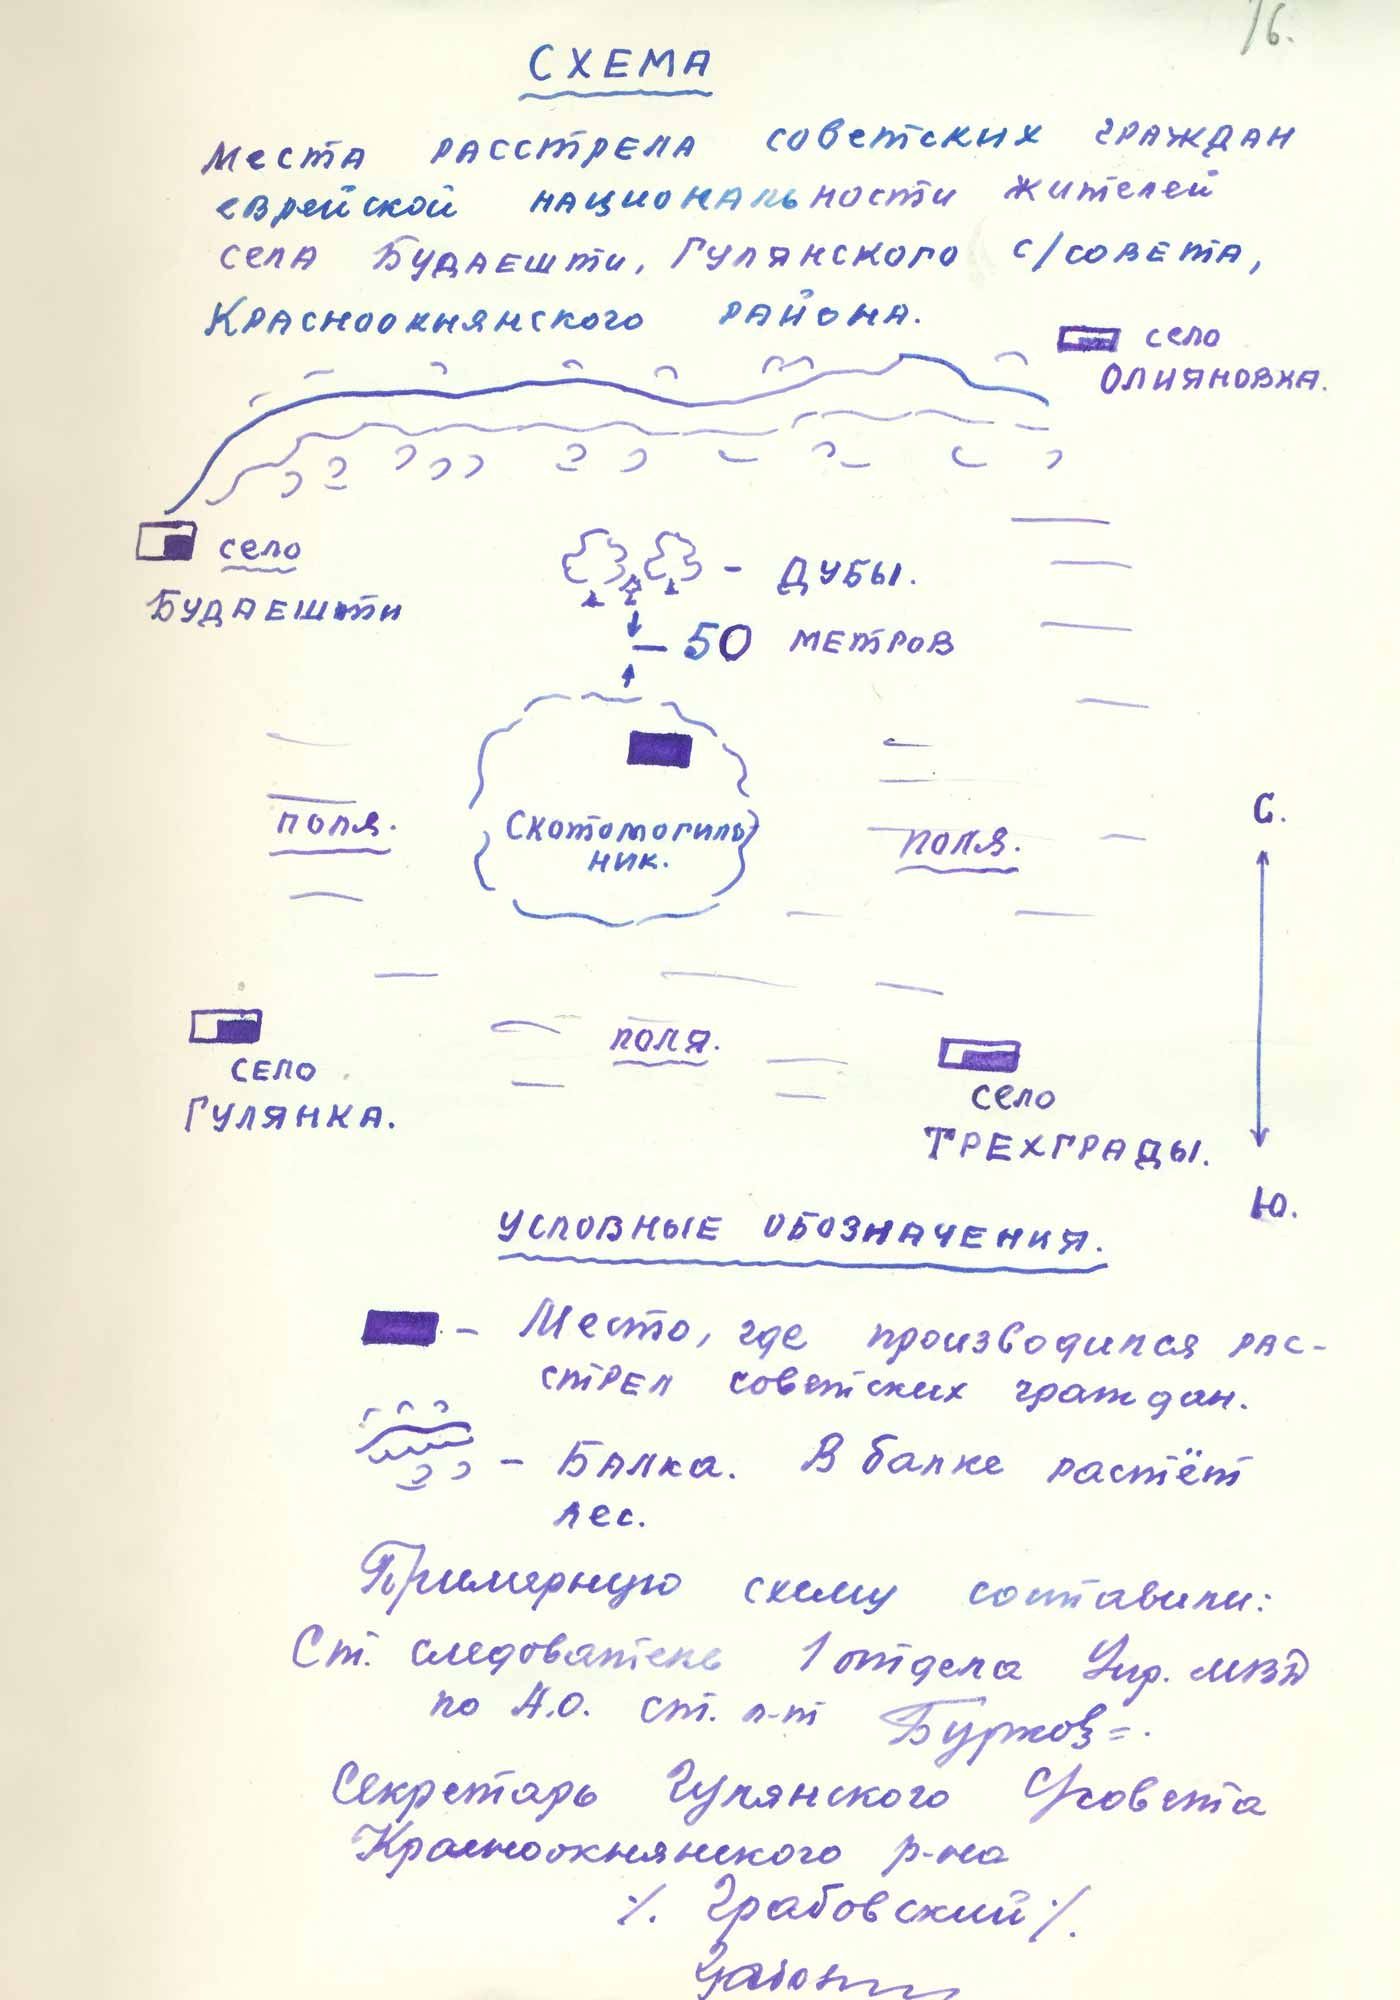 16.
СХЕМА
Места расстрела советских граждан
еврейской национальности жителей
села Будаешти, Гулянского с/совета,
Красноокнянского района.
село
Олияновка.
село
Будаешти
- Дубы.
50 метров
Скотомогиль
ник.
поля.
поля.
С.
поля.
село
Гулянка.
село
Трехграды.
Ю.
Условные обозначения.
- Место, где производился рас-
стрел советских граждан.
- Балка. В балке растёт
лес.
Примерную схему составили:
Ст. следователь 1 отдела Упр. МВД
по А.О. ст. л-т
Секретарь Гулянского с/совета
Красноокнянского р-на
/. Грабовский /.